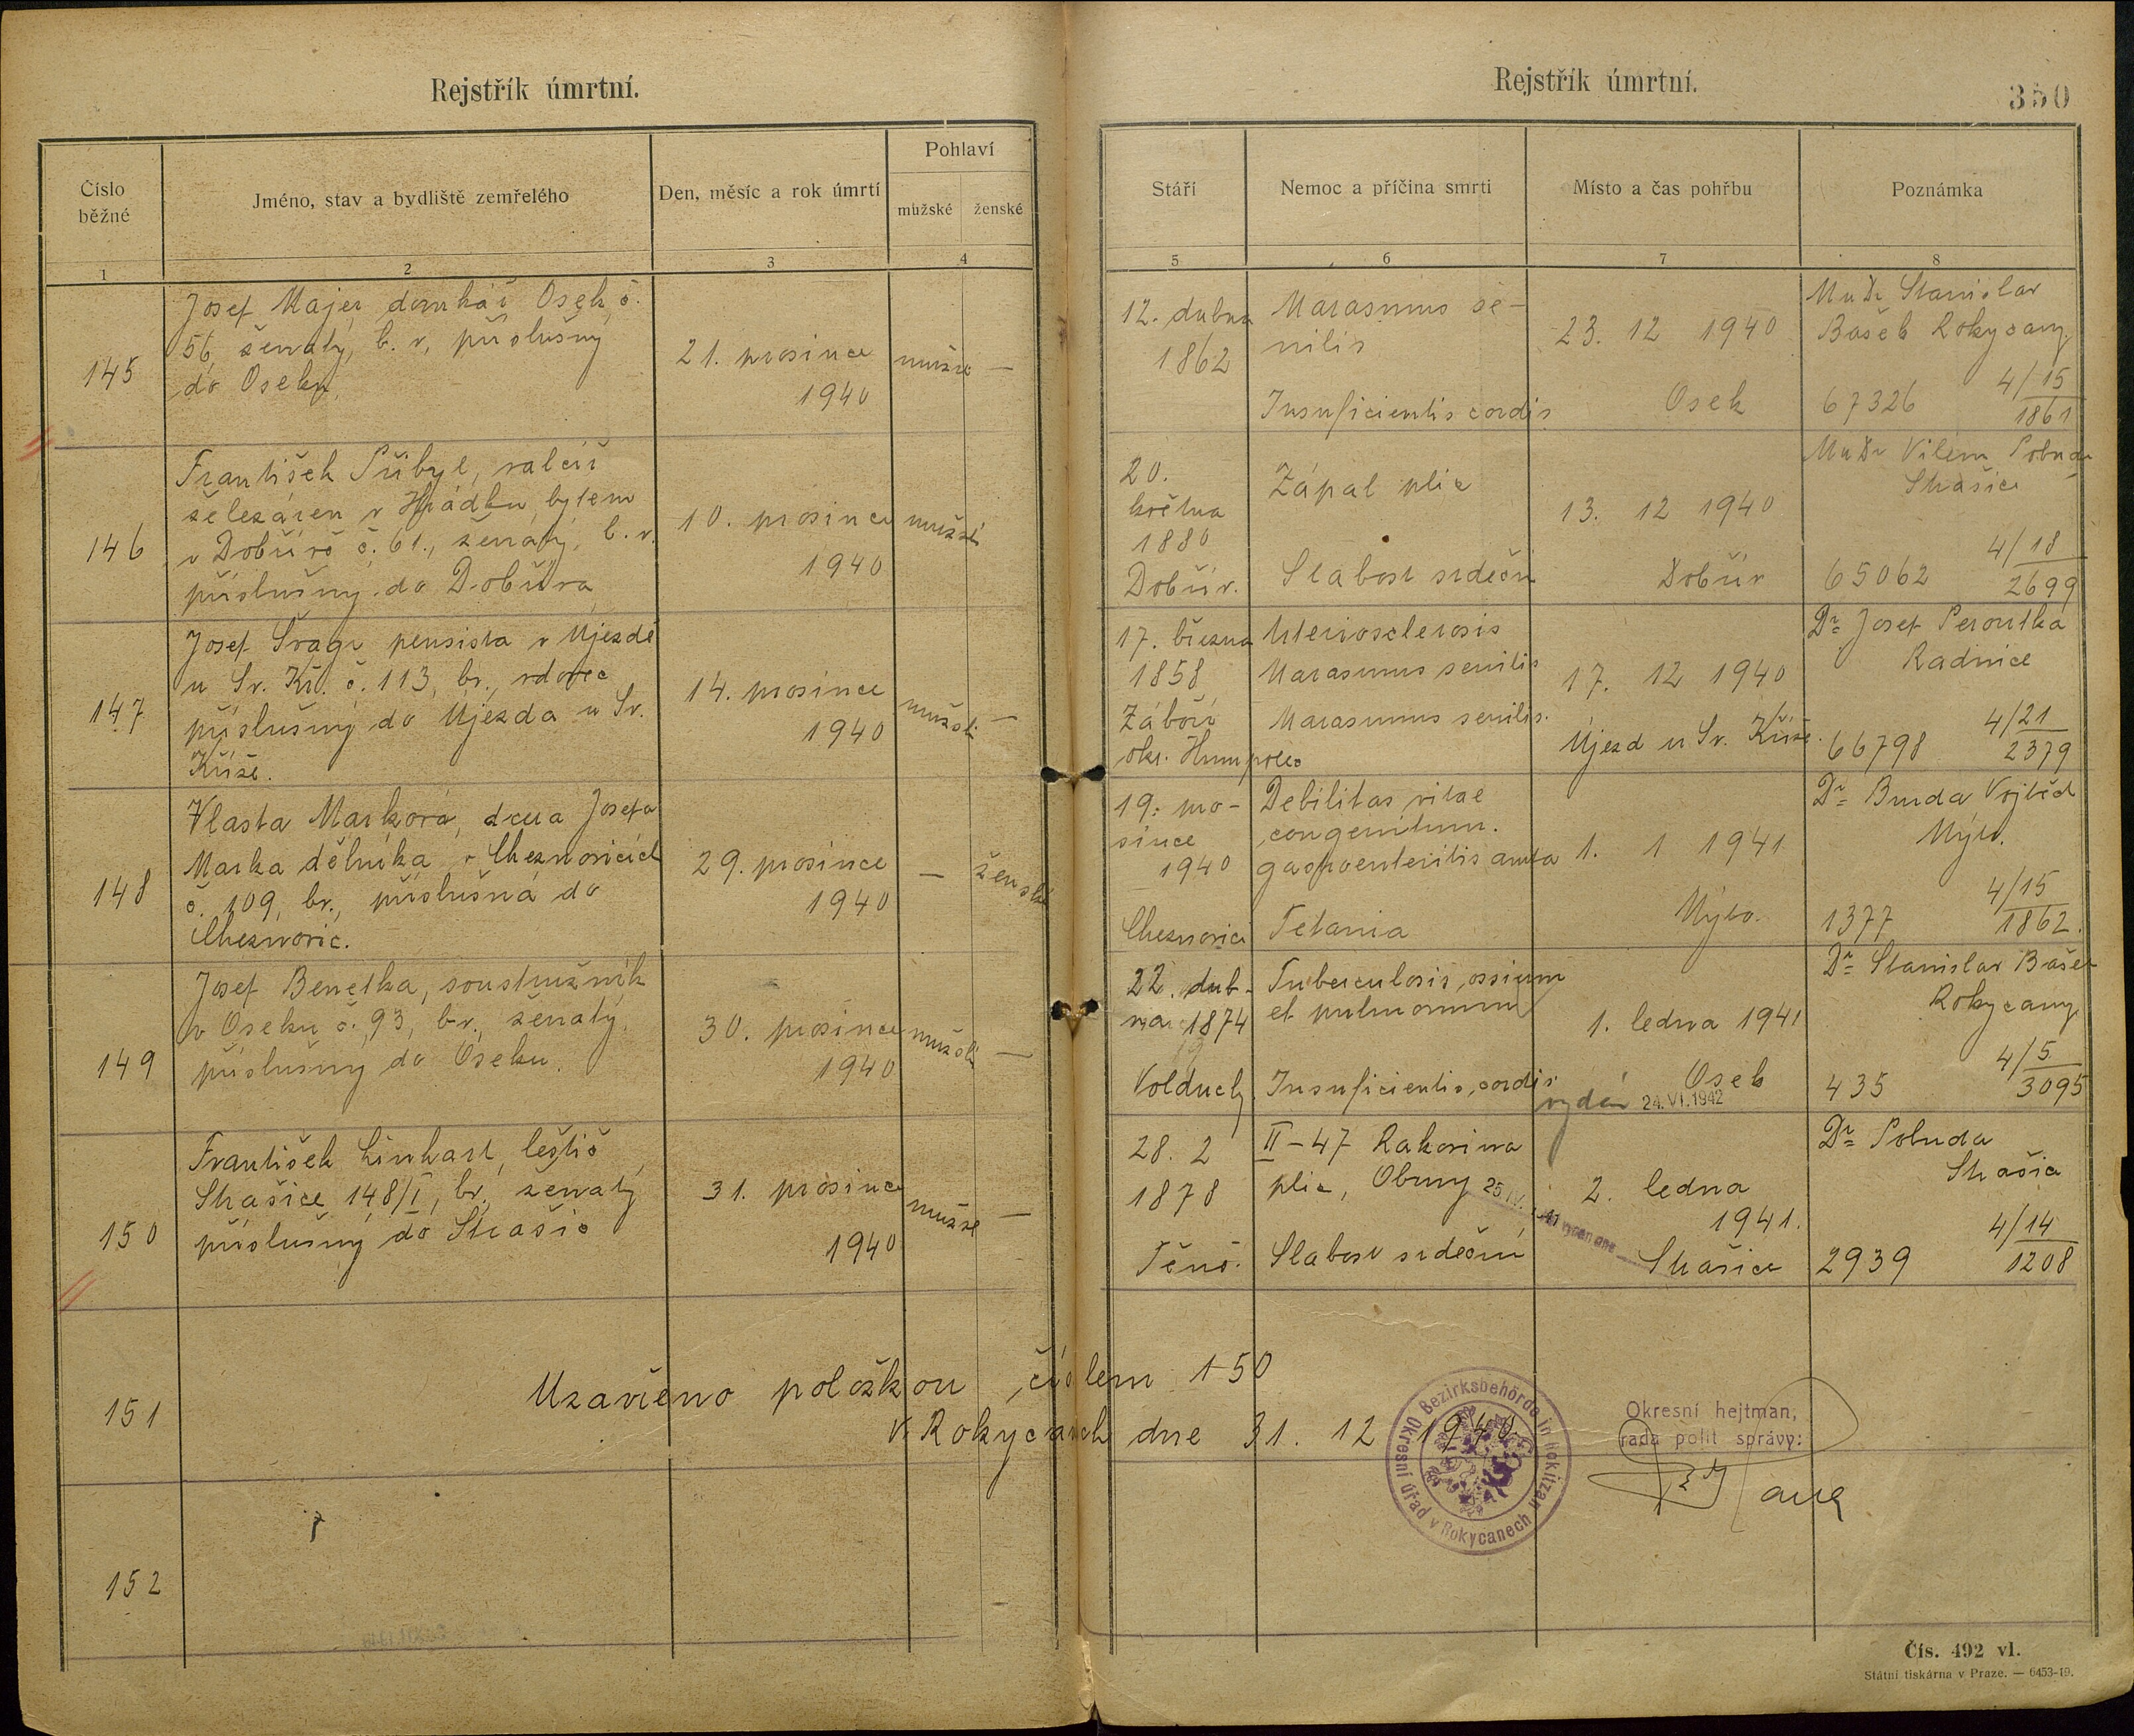 Rejstřík úmrtní.
Číslo běžné
Jméno, stav a bydliště zemřelého
Den, měsíc a rok úmrtí
Pohlaví
mužské
ženské
1
2
3
4
145
Josef Majer, domkář Osek č.
56, ženatý, b. v., příslušný
do Oseku.
21. prosince
1940
mužské —
146
František Přibyl, valcíř
železáren v Hrádku, bytem
v Dobřívě č. 61., ženatý, b. v.
příslušný do Dobříva
10. prosince
1940
mužské
147
Josef Švagr pensista v Újezdě
u Sv. Kř. č. 113, bv., vdovec
příslušný do Újezda u Sv.
Kříže.
14. prosince
1940
mužské —
148
Vlasta Marková, dcera Josefa
Marka dělníka v Cheznovicích
č. 109, bv., příslušná do
Cheznovic.
29. prosince
1940
— ženské
149
Josef Benetka, soustružník
v Oseku č. 93, bv., ženatý,
příslušný do Oseku.
30. prosince
1940
mužské —
150
František Linhart, leštič
Strašice 148/I, bv., ženatý
příslušný do Strašic
31. prosince
1940
mužské —
151
Uzavřeno položkou číslem 150
V Rokycanech dne 31. 12 1940.
152
Rejstřík úmrtní.
350
Stáří
Nemoc a příčina smrti
Místo a čas pohřbu
Poznámka
5
6
7
8
12. dubna
1862
Marasmus se-
nilis
Insuficientis cordis
23. 12 1940
Osek
MuDr Stanislav
Bašek Rokycany.
67326
4/15
1861
20.
května
1880
Dobřív.
Zápal plic
Slabost srdeční
13. 12 1940
Dobřív
MuDr Vilém Pobuda
Strašice
65062
4/18
2699
17. března
1858
Záboří
okr. Humpolec
Arteriosclerosis
Marasmus senilis
Marasmus senilis.
17. 12 1940
Újezd u Sv. Kříže.
Dr Josef Peroutka
Radnice
66798
4/21
2379
19. pro-
since
1940
Cheznovice
Debilitas vitae
congenitum.
gastroenteritis acuta
Tetania
1. 1 1941
Mýto.
Dr Burda Vojtěch
Mýto.
1377
4/15
1862.
22. dub-
na 1874
Volduchy.
Tuberculosis ossium
et pulmonum
Insuficientis cordis
1. ledna 1941
Osek
vydán 24.VI.1942
Dr Stanislav Bašek
Rokycany
435
4/5
3095
28. 2
1878
Těně.
II-47 Rakovina
plic, Obrny
Slabost srdeční
2. ledna
1941.
Strašice
Dr Pobuda
Strašice
2939
4/14
1208
Bezirksbehörde in Rokitzan
Okresní úřad v Rokycanech
Okresní hejtman,
rada polit správy:
Čís. 492 vl.
Státní tiskárna v Praze. — 6453-19.